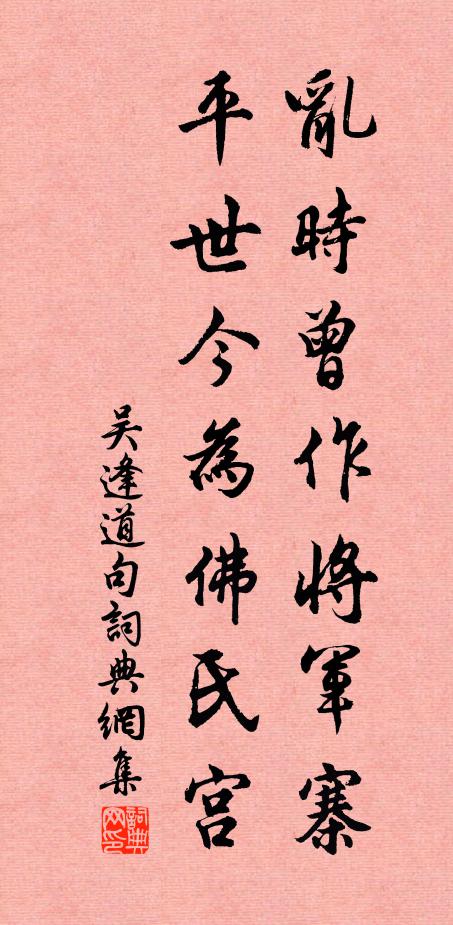 亂時曾作將軍寨
平世今為佛氏宫
吴逢道句詞典網集
詞典网印